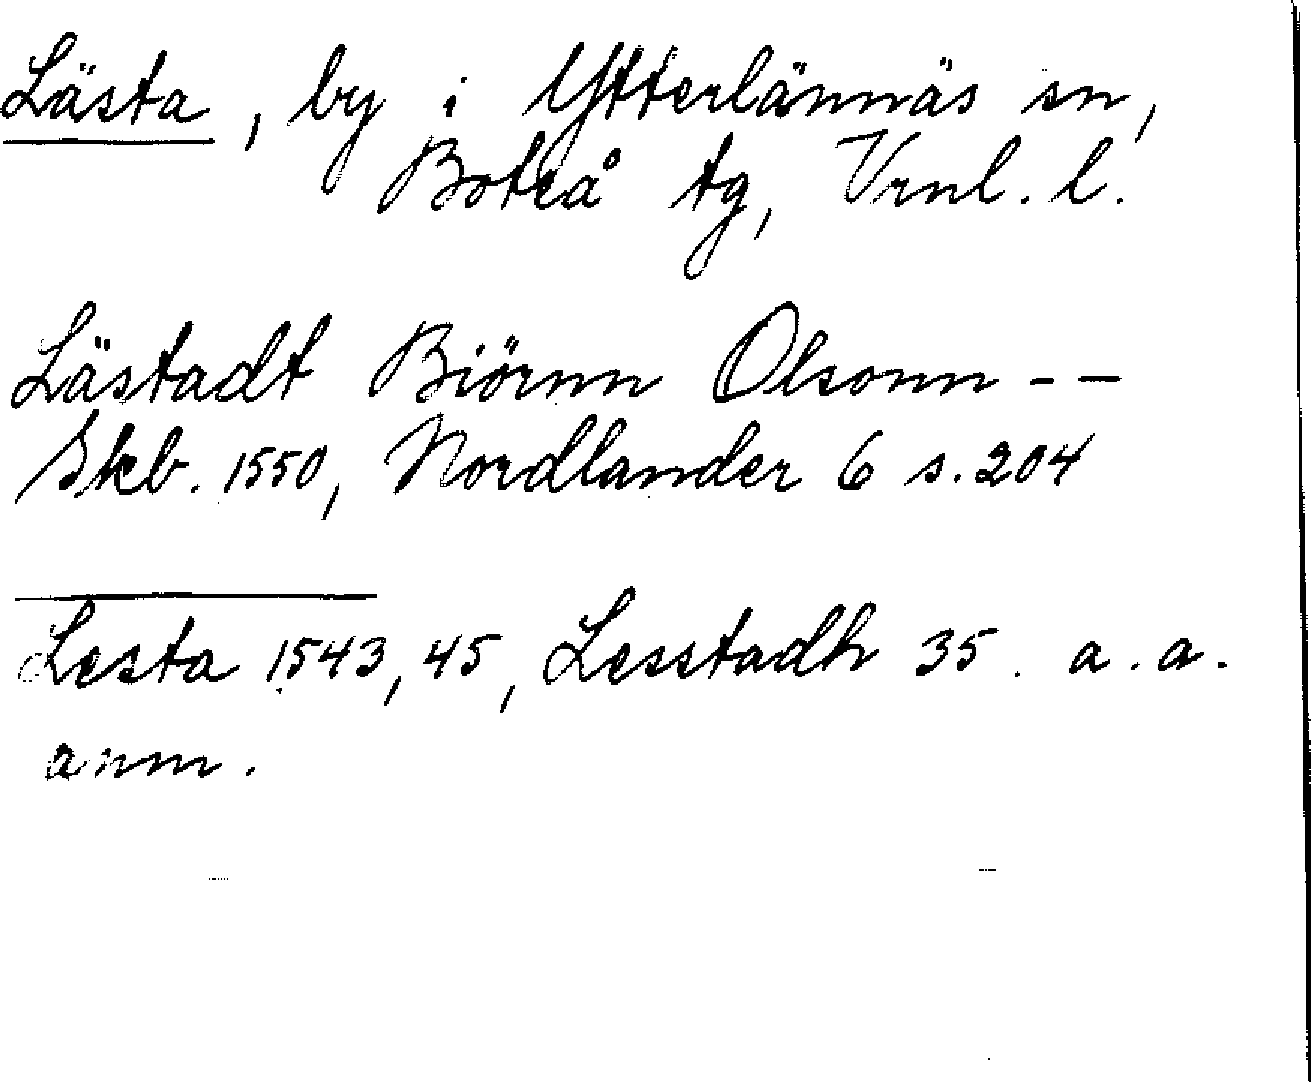 Lästa, by i Ytterlännäs sn,
Boteå tg, Vrnl. l.
Lästadt Biörnn Olsonn - -
Skb. 1550, Nordlander 6 s. 204
Lesta 1543, 45, Lesstadh 35. a. a.
anm.